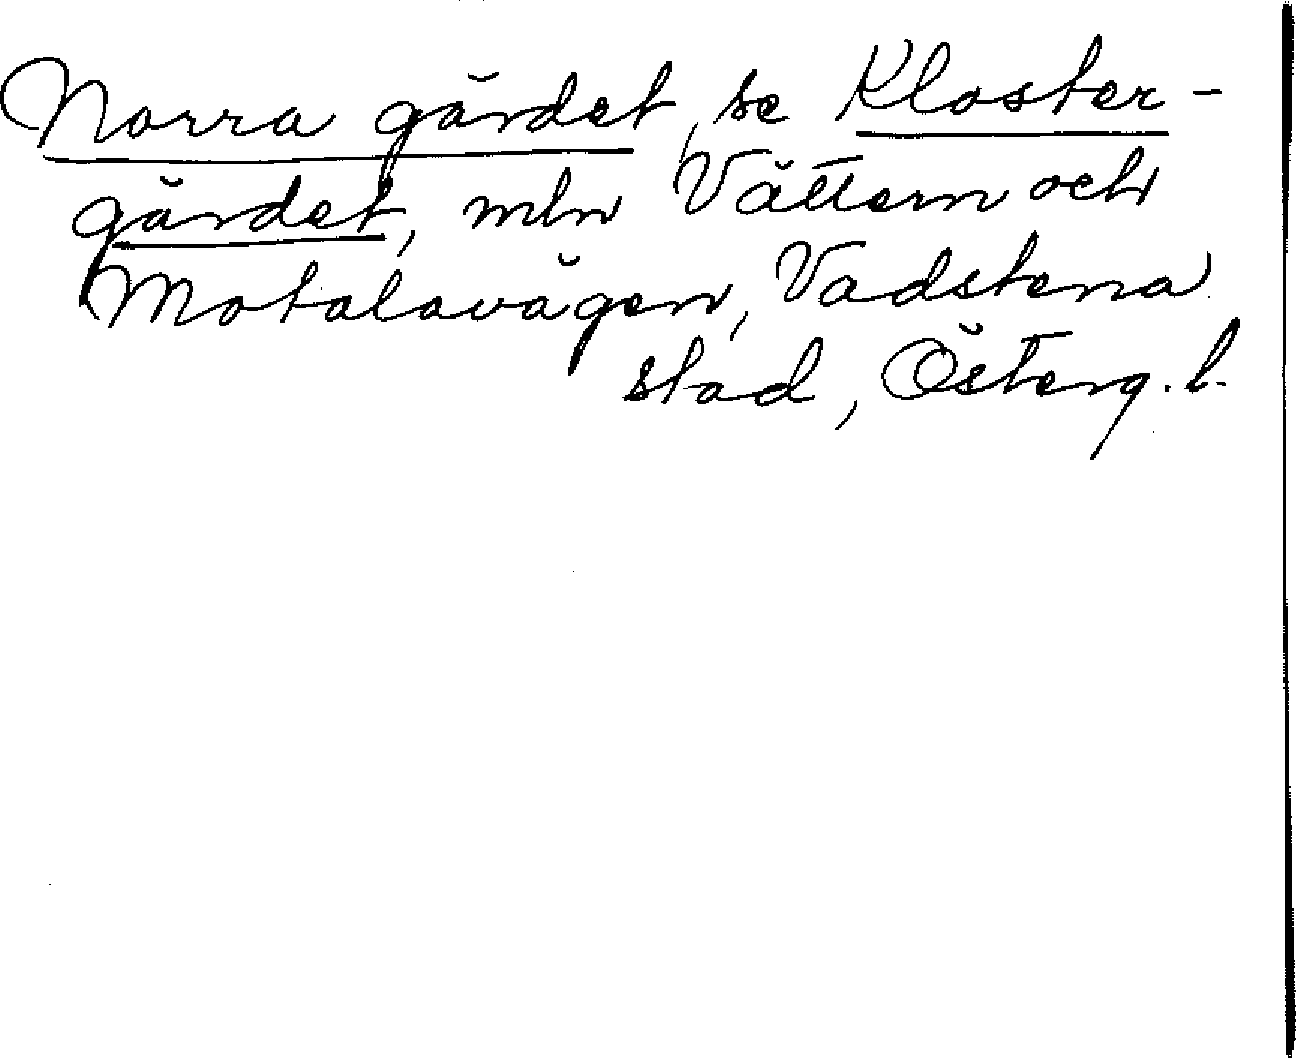 Norra gärdet, se Kloster-
gärdet, mln Vättern och
Motalavägen, Vadstena
stad, Österg. l.